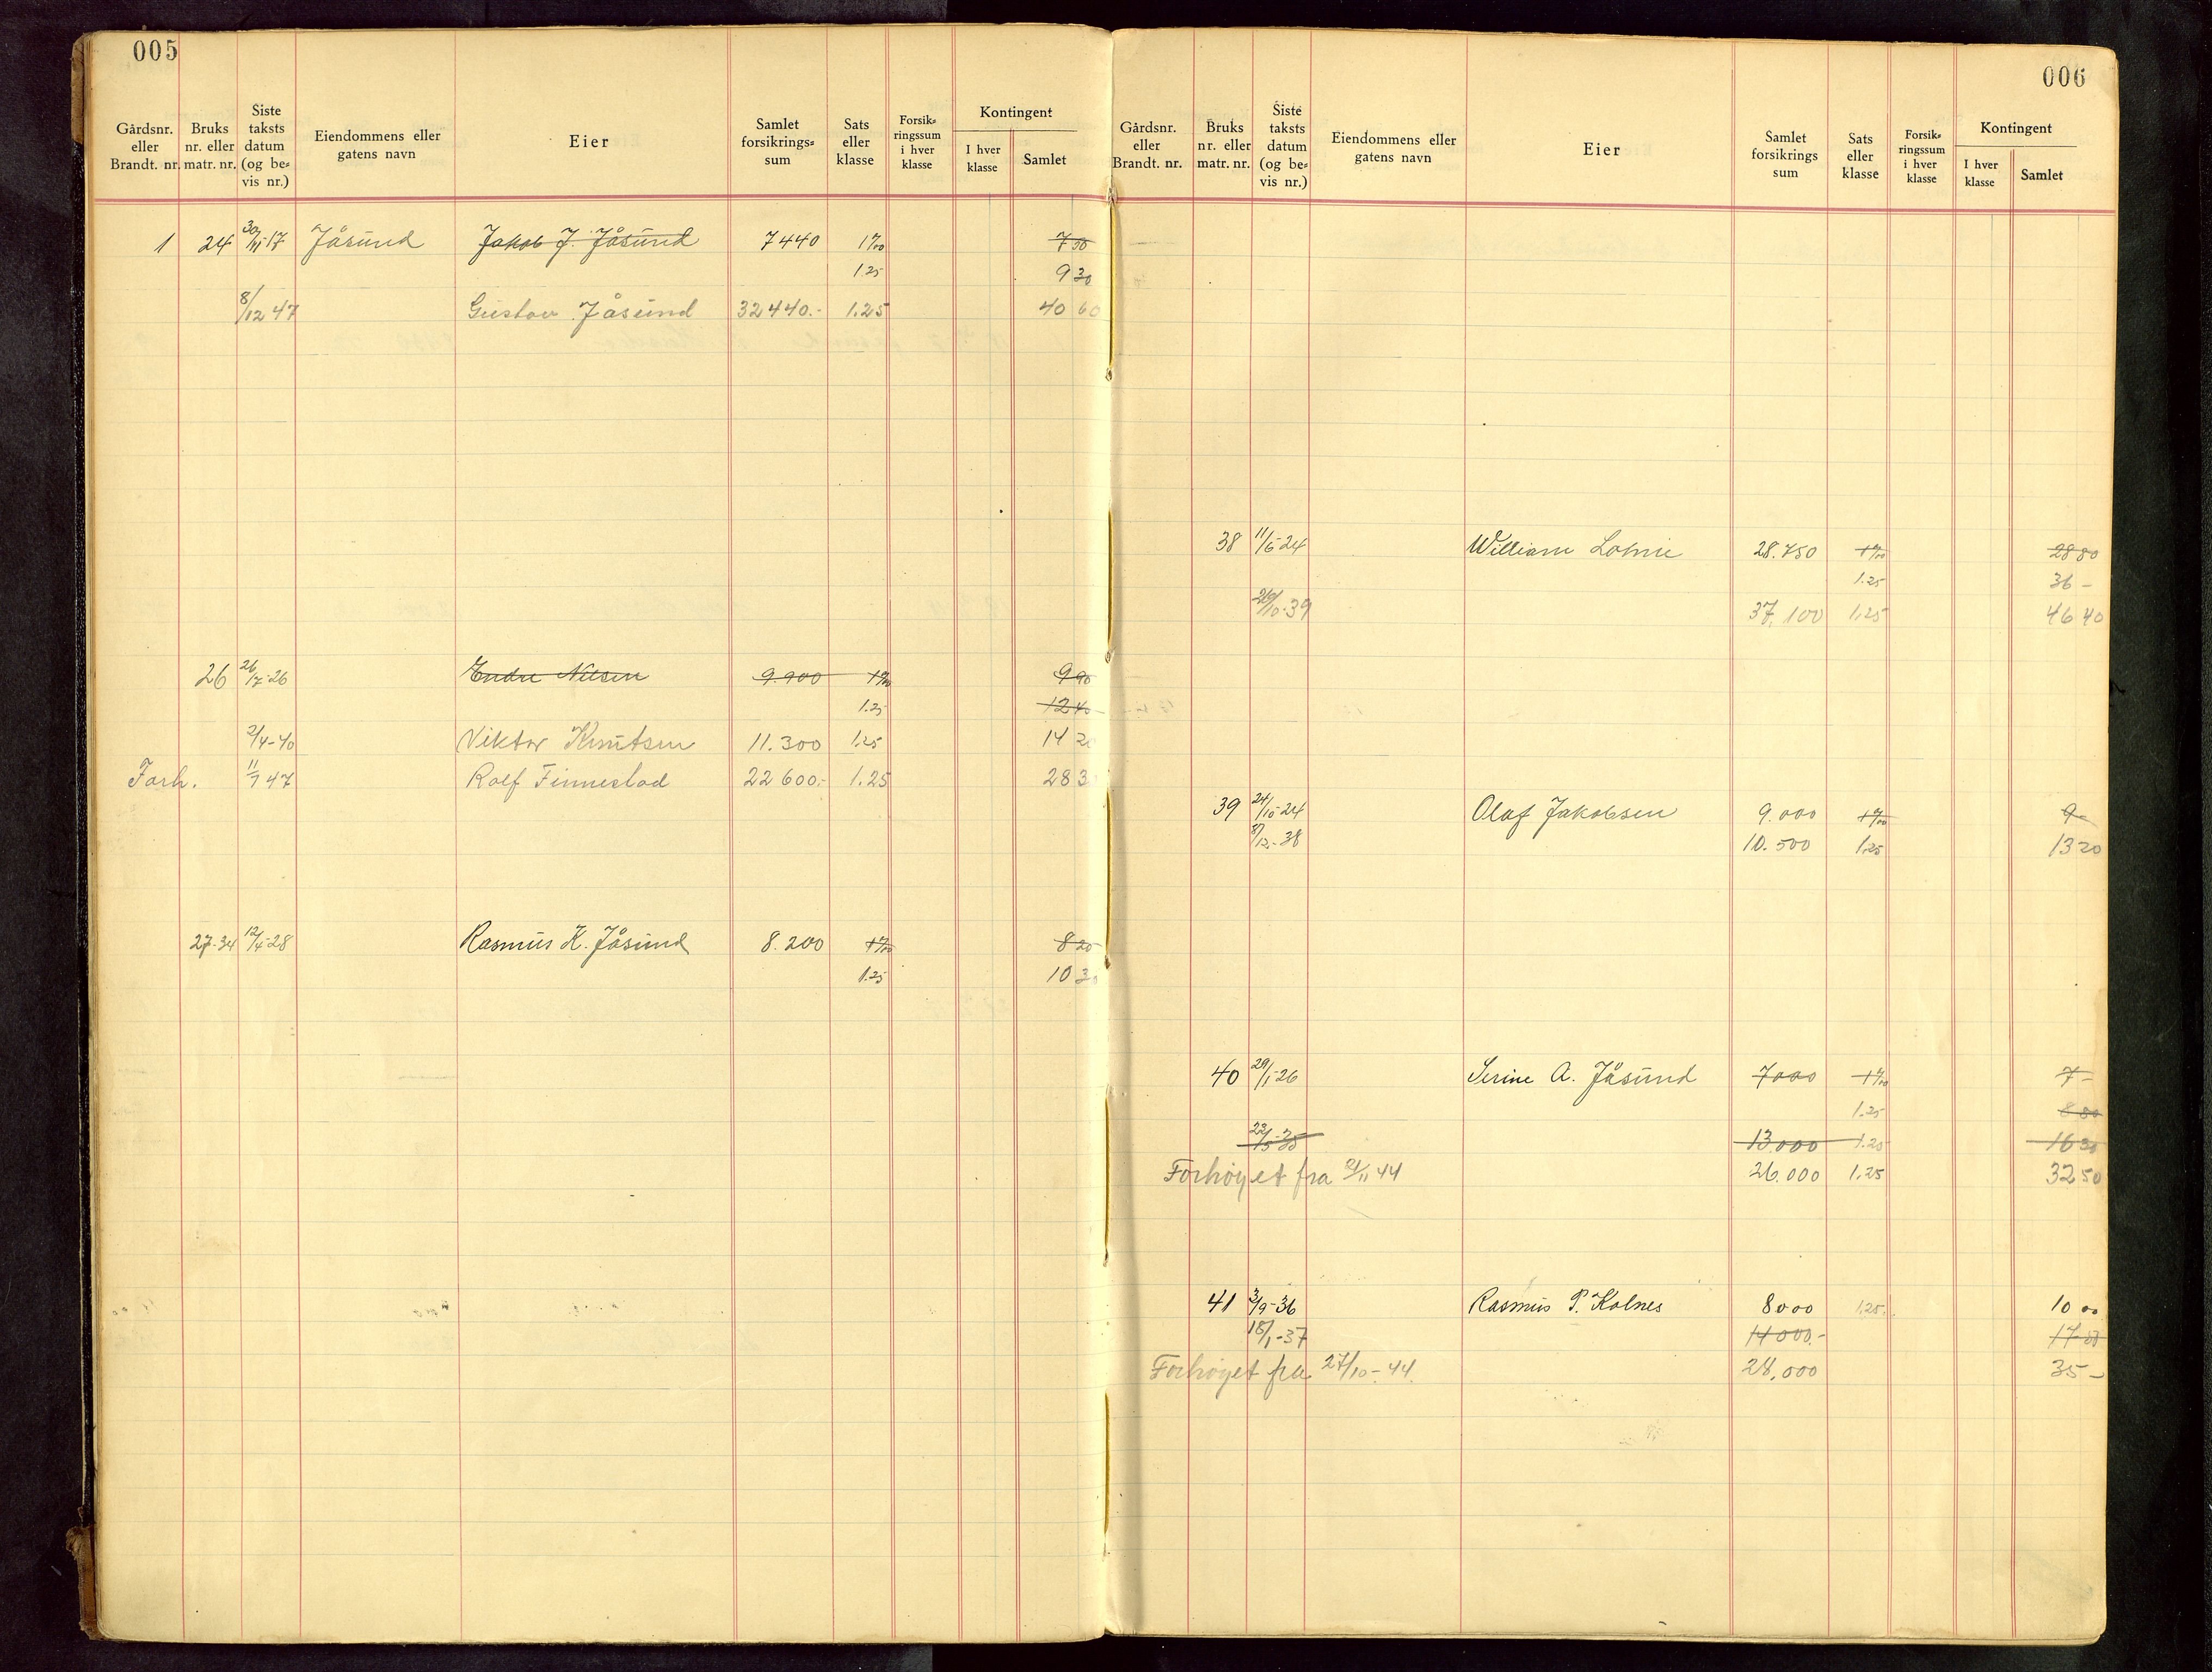 005
Gårdsnr. eller Brandt. nr. Bruks nr. eller matr. nr. Siste taksts datum (og be= vis nr.) Eiendommens eller gatens navn Eier Samlet forsikrings= sum Sats eller klasse Forsik= ringssum i hver klasse Kontingent I hver klasse Samlet
1 24 30/11 17 Jåsund Jakob J. Jåsund 7440 1‰ 7 50
1.25 9 30
8/12 47 Gustav Jåsund 32440.- 1.25 40 60
26 26/7-26 Endre Nilsen 9.900 1‰ 9 90
1.25 12 40
2/4-40 Viktor Knutsen 11.300 1.25 14 2
Forh. 11/7 47 Rolf Finnestad 22600.- 1.25 28 3
27-34 12/4-28 Rasmus K. Jåsund 8.200 1‰ 8 20
1.25 10 30
006
Gårdsnr. eller Brandt. nr. Bruks nr. eller matr. nr. Siste taksts datum (og be= vis nr.) Eiendommens eller gatens navn Eier Samlet forsikrings sum Sats eller klasse Forsik= ringssum i hver klasse Kontingent I hver klasse Samlet
38 11/6-24 William 28.750 1‰ 28 80
1.25 36 -
26/10-39 37.100 1.25 46 40
39 24/10-24 Olaf Jakobsen 9.000 1‰ 9-
8/12-38 10.500 1.25 13 20
40 29/1-26 Serine A. Jåsund 7000 1‰ 7-
1.25 8 80
22/5-35 13.000 1.25 16 30
Forhøyet fra 2/11 44 26.000 1.25 32 50
41 3/9-36 Rasmus P. Kolnes 8000 1.25. 10 00
18/1-37 14000.- 17 50
Forhøyet fra 27/10-44. 28.000 35-